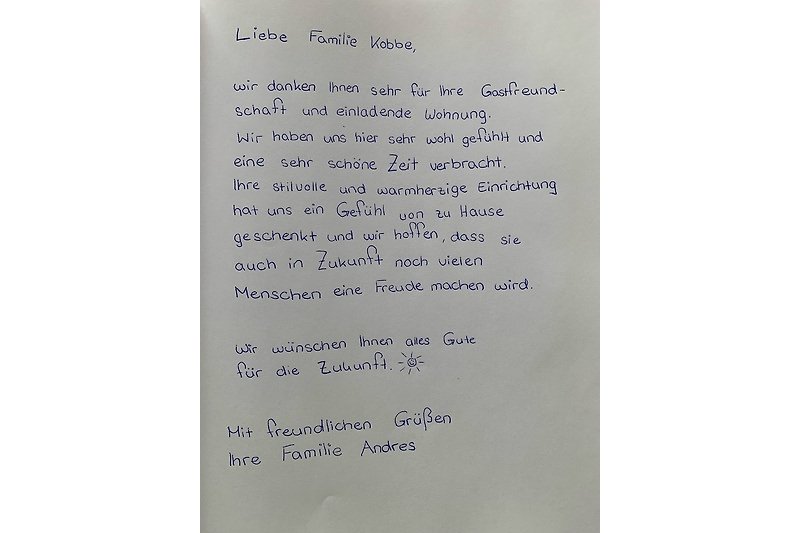 Liebe Familie Kobbe,
wir danken Ihnen sehr für Ihre Gastfreund-
schaft und einladende Wohnung.
Wir haben uns hier sehr wohl gefühlt und
eine sehr schöne Zeit verbracht.
Ihre stilvolle und warmherzige Einrichtung
hat uns ein Gefühl von zu Hause
geschenkt und wir hoffen, dass sie
auch in Zukunft noch vielen
Menschen eine Freude machen wird.
Wir wünschen Ihnen alles Gute
für die Zukunft.
Mit freundlichen Grüßen
Ihre Familie Andres